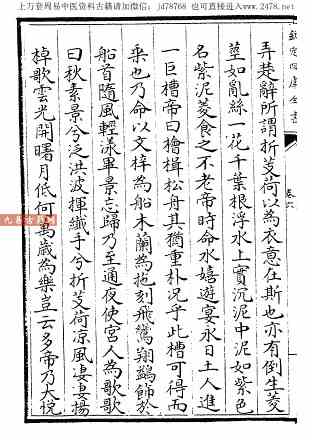 上万套周易中医资料古籍请加微信:jd78768 也可直接进入www.2478.net
欽定四庫全書
卷六
弄楚辭所謂折芰荷以為衣意在斯也亦有倒生菱
莖如亂絲一花千葉根浮水上實沉泥中泥如紫色
名紫泥菱食之不老帝時命水嬉遊宴永日土人進
一巨槽帝曰檜楫松舟其猶重朴况乎此槽可得而
乘也乃命以文梓為船木蘭為柂刻飛鸞翔鷁飾於
船首隨風輕漾畢景忘歸乃至通夜使宮人為歌歌
曰秋素景兮泛洪波揮纖手兮折芰荷涼風淒淒揚
棹歌雲光開曙月低河萬歲為樂豈云多帝乃大悅